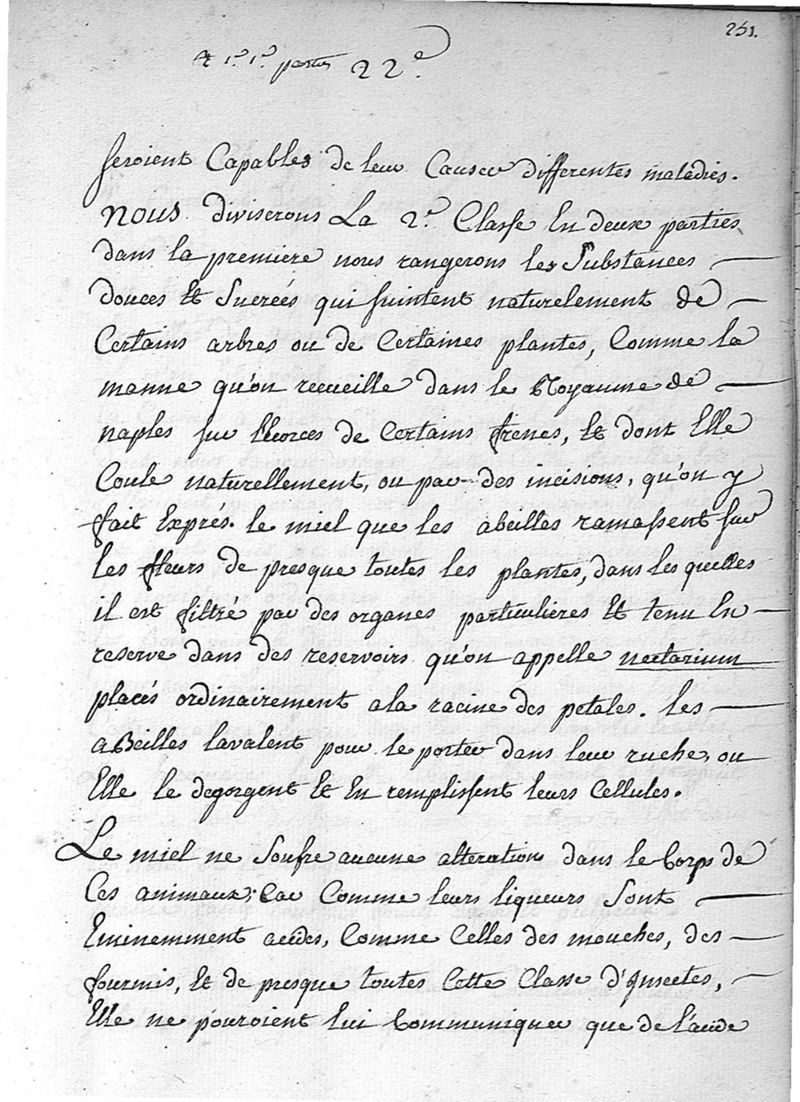 251.
1.e 1.e partie 22.e
seroient Capables de leur Causer differentes maladies.
nous diviserons La 2.e Classe En deux parties
dans la premiere nous rangerons les Substances
douces Et Sucreés qui suintent naturelement de
Certains arbres ou de Certaines plantes, Comme la
manne qu'on recueille dans le Royaume de
naples sur l'Ecorces de Certains frenes, Et dont Elle
Coule naturellement, ou par des incisions, qu'on y
fait Exprés. le miel que les abeilles ramassent sur
les fleurs de presque toutes les plantes, dans les quelles
il est filtré par des organes particulieres Et tenu En
reserve dans des reservoirs qu'on appelle nectarium
placés ordinairement a la racine des petales. les
abeilles lavalent pour le porter dans leur ruche, ou
Elle le degorgent Et En remplissent leurs Cellules.
Le miel ne soufre aucune alteration dans le Corps de
Ces animaux; Car Comme leurs liqueurs Sont
Eminemment acides, Comme Celles des mouches, des
fourmis, Et de presque toutes Cette Classe d'Insectes,
Elle ne pouroient lui Communiquer que de l'acide